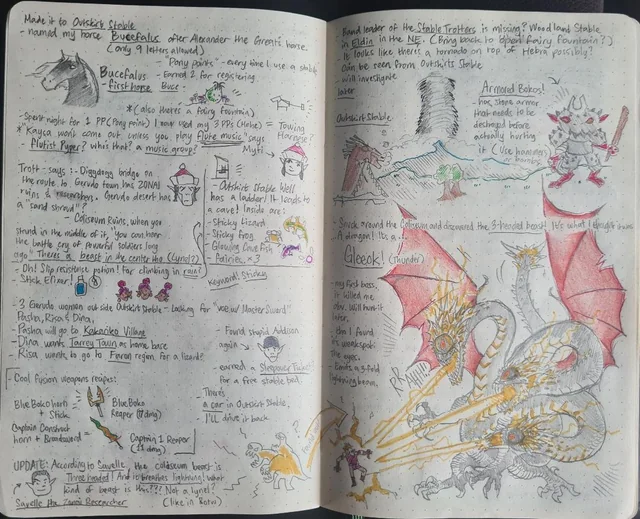 Made it to Outskirt Stable
- named my horse Bucefalus after Alexander the Great's horse.
(only 9 letters allowed)
"Pony points" - every time I use a stable
Bucefalus - Earned 2 for registering.
first horse
*(also there's a fairy fountain)
- Spent night for 1 PP (Pony point) I now used my 3 PPs (Hehe) = Towing
Harness?
* "Kayca wont come out unless you play flute music" says
Myti
Flutist Pyper? who's that? a music group?
Trott - says: - Digdogg bridge on
the route to Gerudo town has ZONAI
ruins & Gerudo desert has
a "sand shroud"?
- Coliseum Ruins, when you
stand in the middle of it, "you can hear
the battle cry of powerful soldiers long
ago" There's a beast in the center tho (Lynel?)
- Outskirt Stable Well
has a ladder! It leads to
a cave! Inside are:
- Sticky Lizard
- Sticky frog
- Glowing Cave Fish
- Fairies x3
Keyword: Sticky
- Oh! Slip resistance potion! for climbing in rain?
- Stick Elixir!
- 3 Gerudo women outside Outskirt Stable - Looking for "voe w/ Master Sword"
Pasha, Risa & Dina.
- Pasha will go to Kakariko Village
- Dina wants Tarrey Town as home base
- Risa wants to go to Faron region for a lizard?
- Found stupid Addison
again
- earned a Sleepover Ticket
for a free stable bed.
There's
a car in Outskirt Stable,
I'll drive it back
- Cool Fusion weapons recipes:
Blue Boko horn
+ Stick
Blue Boko
Reaper (17 dmg)
Captain Construct
horn + Broadsword
Captain I Reaper
UPDATE: According to Savelle, the coliseum beast is
Three headed! And it breathes lightning! What
kind of beast is this??! Not a lynel?
(like in botw)
Savelle the Zonai Researcher
Band leader of the Stable Trotters is missing? Woodland Stable
in Eldin in the NE. (Bring back to open fairy fountain?)
It looks like there's a tornado on top of Hebra possibly?
Can be seen from Outskirts Stable
- will investigate
later
Outskirt Stable
Armored Bokos!
- has stone armor
that needs to be
destroyed before
actually hurting
it (use hammers)
- Snuck around the Coliseum and discovered the 3-headed beast!
A dragon! It's a...
Gleeok! (Thunder)
- my first boss,
it killed me
obv. Will hunt it
later.
- tho I found
its weakspot:
the eyes.
- Emits a 3-fold
lightning beam.